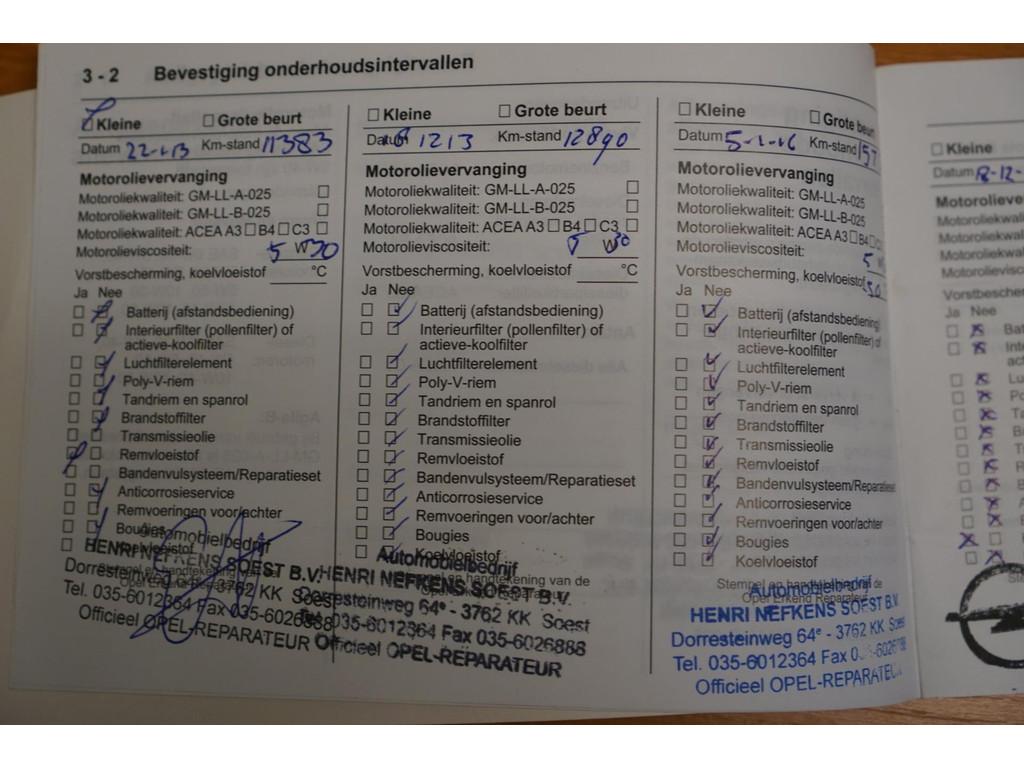 3 - 2 Bevestiging onderhoudsintervallen
Kleine Grote beurt
Datum 22-1-13 Km-stand 11383
Motorolievervanging
Motoroliekwaliteit: GM-LL-A-025
Motoroliekwaliteit: GM-LL-B-025
Motoroliekwaliteit: ACEA A3 B4 C3
Motorolieviscositeit: 5 W30
Vorstbescherming, koelvloeistof °C
Ja Nee
Batterij (afstandsbediening)
Interieurfilter (pollenfilter) of
actieve-koolfilter
Luchtfilterelement
Poly-V-riem
Tandriem en spanrol
Brandstoffilter
Transmissieolie
Remvloeistof
Bandenvulsysteem/Reparatieset
Anticorrosieservice
Remvoeringen voor/achter
Bougies
Koelvloeistof
Automobielbedrijf
HENRI NEFKENS SOEST B.V.
Dorresteinweg 64ᵉ - 3762 KK Soest
Tel. 035-6012364 Fax 035-6026888
Officieel OPEL-REPARATEUR
Kleine Grote beurt
Datum 1213 Km-stand 12890
Motorolievervanging
Motoroliekwaliteit: GM-LL-A-025
Motoroliekwaliteit: GM-LL-B-025
Motoroliekwaliteit: ACEA A3 B4 C3
Motorolieviscositeit: 5 W30
Vorstbescherming, koelvloeistof °C
Ja Nee
Batterij (afstandsbediening)
Interieurfilter (pollenfilter) of
actieve-koolfilter
Luchtfilterelement
Poly-V-riem
Tandriem en spanrol
Brandstoffilter
Transmissieolie
Remvloeistof
Bandenvulsysteem/Reparatieset
Anticorrosieservice
Remvoeringen voor/achter
Bougies
Koelvloeistof
Automobielbedrijf
HENRI NEFKENS SOEST B.V.
Dorresteinweg 64ᵉ - 3762 KK Soest
Tel. 035-6012364 Fax 035-6026888
Officieel OPEL-REPARATEUR
Kleine Grote beurt
Datum 5-1-16 Km-stand 157
Motorolievervanging
Motoroliekwaliteit: GM-LL-A-025
Motoroliekwaliteit: GM-LL-B-025
Motoroliekwaliteit: ACEA A3 B4 C
Motorolieviscositeit: 5 W
Vorstbescherming, koelvloeistof
Ja Nee
Batterij (afstandsbediening)
Interieurfilter (pollenfilter) of
actieve-koolfilter
Luchtfilterelement
Poly-V-riem
Tandriem en spanrol
Brandstoffilter
Transmissieolie
Remvloeistof
Bandenvulsysteem/Reparatieset
Anticorrosieservice
Remvoeringen voor/achter
Bougies
Koelvloeistof
Stempel en handtekening van de
Opel Erkend Reparateur
Automobielbedrijf
HENRI NEFKENS SOEST B.V.
Dorresteinweg 64ᵉ - 3762 KK Soest
Tel. 035-6012364 Fax
Officieel OPEL-REPARATEU
Kleine
Datum 8-12-
Motorolieve
Motoroliekwal
Motoroliekwa
Motoroliekw
Motorolievisc
Vorstbescher
Ja Nee